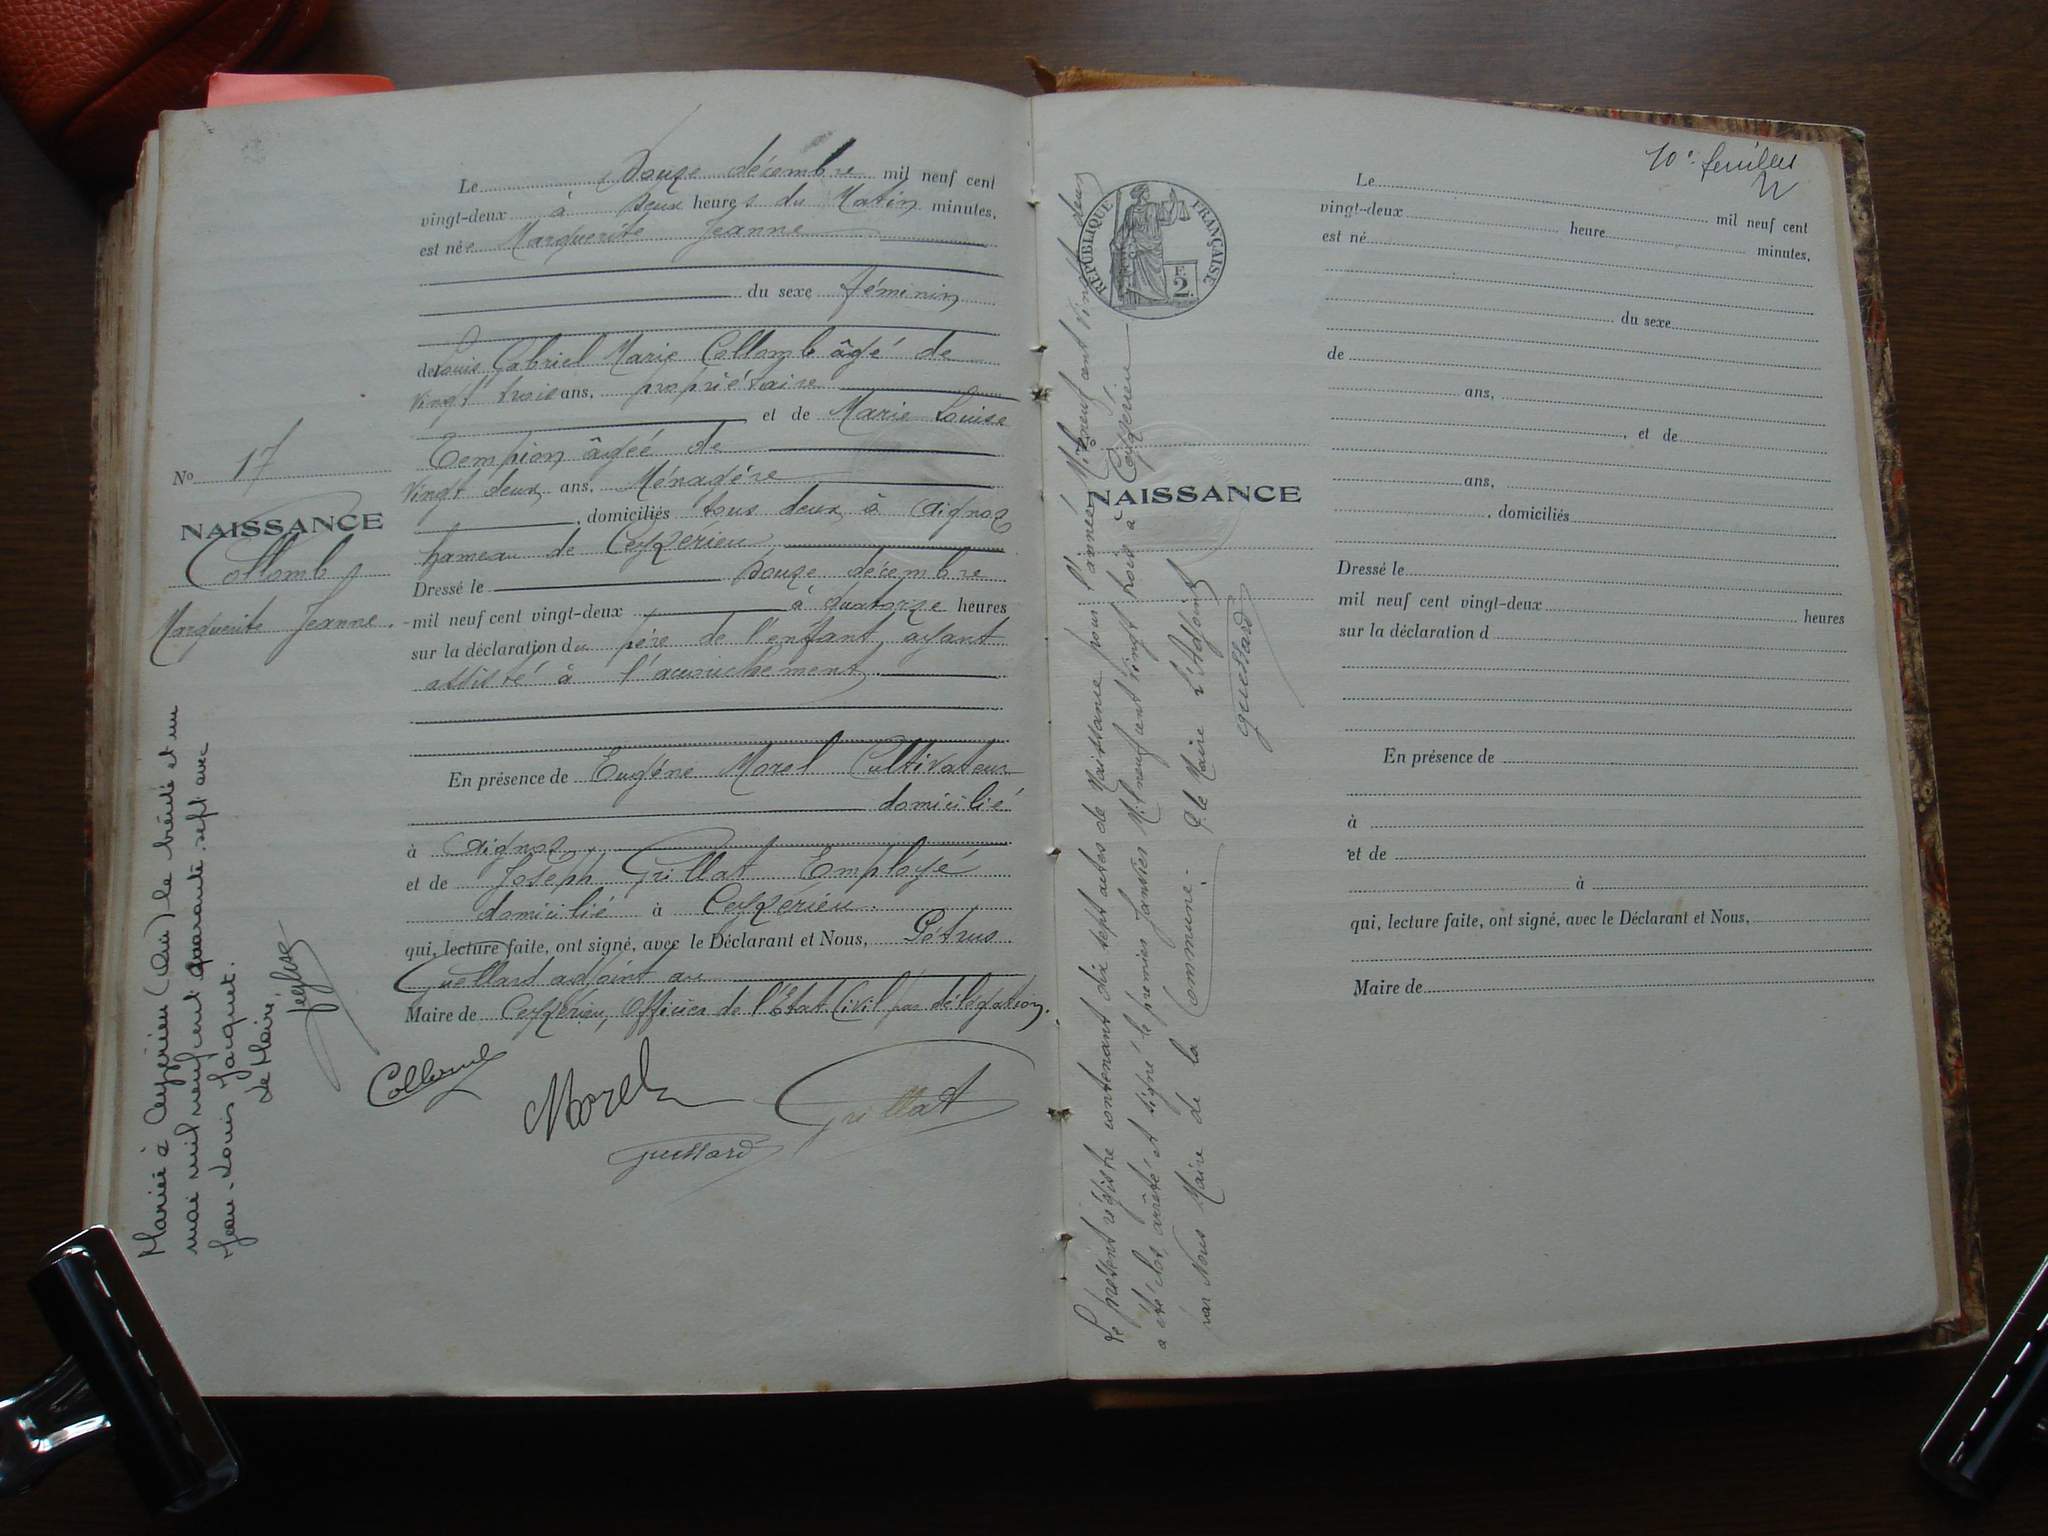 Le Douze décembre mil neuf cent
vingt-deux à deux heures du Matin minutes,
est née Marguerite Jeanne
du sexe féminin
de Louis Gabriel Marie Collomb âgé de
vingt trois ans, propriétaire
et de Marie Louise
Tempion âgée de
vingt deux ans, Ménagère
, domiciliés tous deux à Aignoz
hameau de Ceyzérieu
Dressé le douze décembre
mil neuf cent vingt-deux à quatorze heures
sur la déclaration du père de l'enfant, ayant
assisté à l'accouchement
En présence de Eugène Morel Cultivateur
domicilié
à Aignoz
et de Joseph Grillat Employé
domicilié à Ceyzérieu.
qui, lecture faite, ont signé, avec le Déclarant et Nous, Pétrus
Guettard adjoint au
Maire de Ceyzérieu, Officier de l'Etat Civil par délégation.
Collomb
Morel
Grillat
Guettard
No 17
NAISSANCE
Collomb
Marguerite Jeanne.
Mariée à Ceyzérieu (Ain) le trente et un
mai mil neuf cent quarante sept avec
Jean-Louis Jacquet.
Le Maire,
10e feuillet
RÉPUBLIQUE FRANÇAISE
F.
2.
NAISSANCE
No
Le présent régistre contenant dix sept actes de Naissance pour l'année Mil neuf cent Vingt deux
a été clos, arrêté et signé le premier Janvier Mil neuf cent vingt trois à Ceyzérieu
par Nous Maire de la Commune. P. le Maire L'Adjoint
Guettard
Le mil neuf cent
vingt-deux heure minutes,
est né
du sexe
de
ans,
, et de
ans,
, domiciliés
Dressé le
mil neuf cent vingt-deux heures
sur la déclaration d
En présence de
à
et de
à
qui, lecture faite, ont signé, avec le Déclarant et Nous,
Maire de